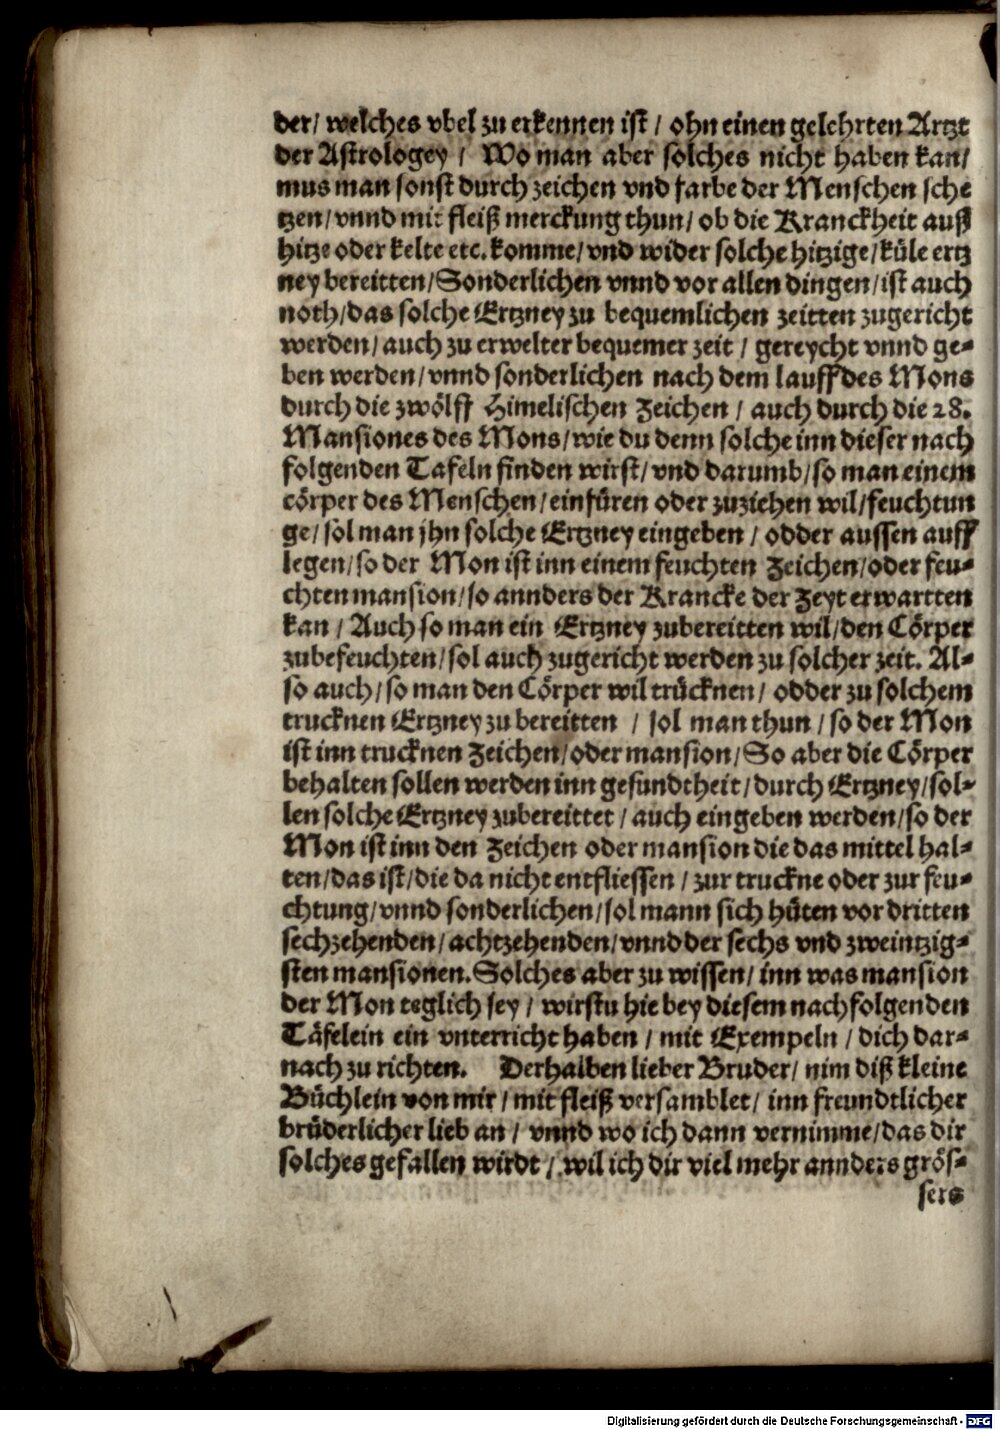 der/ welches vbel zu erkennen ist / ohn einen gelehrten Artzt
der Astrologey / Wo man aber solches nicht haben kan/
mus man sonst durch zeichen vnd farbe der Menschen sche
tzen/ vnnd mit fleiß merckung thun/ ob die Kranckheit auß
hitze oder kelte etc. komme/ vnd wider solche hitzige/ küle ertz
ney bereitten/ Sonderlichen vnnd vor allen dingen/ ist auch
noth/ das solche Ertzney zu bequemlichen zeitten zugericht
werden/ auch zu erwelter bequemer zeit / gereycht vnnd ge-
ben werden/ vnnd sonderlichen nach dem lauff des Mons
durch die zwölff Himelischen Zeichen / auch durch die 28.
Mansiones des Mons/ wie du denn solche inn dieser nach
folgenden Tafeln finden wirst/ vnd darumb/ so man einem
cörper des Menschen/ einfüren oder zuziehen wil/ feuchtun
ge/ sol man jhn solche Ertzney eingeben / odder aussen auff
legen/ so der Mon ist inn einem feuchten Zeichen/ oder feu-
chten mansion/ so annders der Krancke der Zeyt erwartten
kan / Auch so man ein Ertzney zubereitten wil/ den Cörper
zubefeuchten/ sol auch zugericht werden zu solcher zeit. Al-
so auch/ so man den Cörper wil trücknen/ odder zu solchem
trucknen Ertzney zu bereitten / sol man thun / so der Mon
ist inn trucknen Zeichen/ oder mansion/ So aber die Cörper
behalten sollen werden inn gesundtheit/ durch Ertzney/ sol-
len solche Ertzney zubereittet / auch eingeben werden/ so der
Mon ist inn den Zeichen oder mansion die das mittel hal-
ten/ das ist/ die da nicht entfliessen / zur truckne oder zur feu-
chtung/ vnnd sonderlichen/ sol mann sich hüten vor dritten
sechzehenden/ achtzehenden/ vnnd der sechs vnd zweintzig-
sten mansionen. Solches aber zu wissen/ inn was mansion
der Mon teglich sey / wirstu hie bey diesem nachfolgenden
Täfelein ein vnterricht haben / mit Exempeln / dich dar-
nach zu richten. Derhalben lieber Bruder/ nim diß kleine
Büchlein von mir/ mit fleiß versamblet/ inn freundtlicher
brüderlicher lieb an / vnnd wo ich dann vernimme/ das dir
solches gefallen wirdt / wil ich dir viel mehr annders grös-
sers
Digitalisierung gefördert durch die Deutsche Forschungsgemeinschaft - DFG